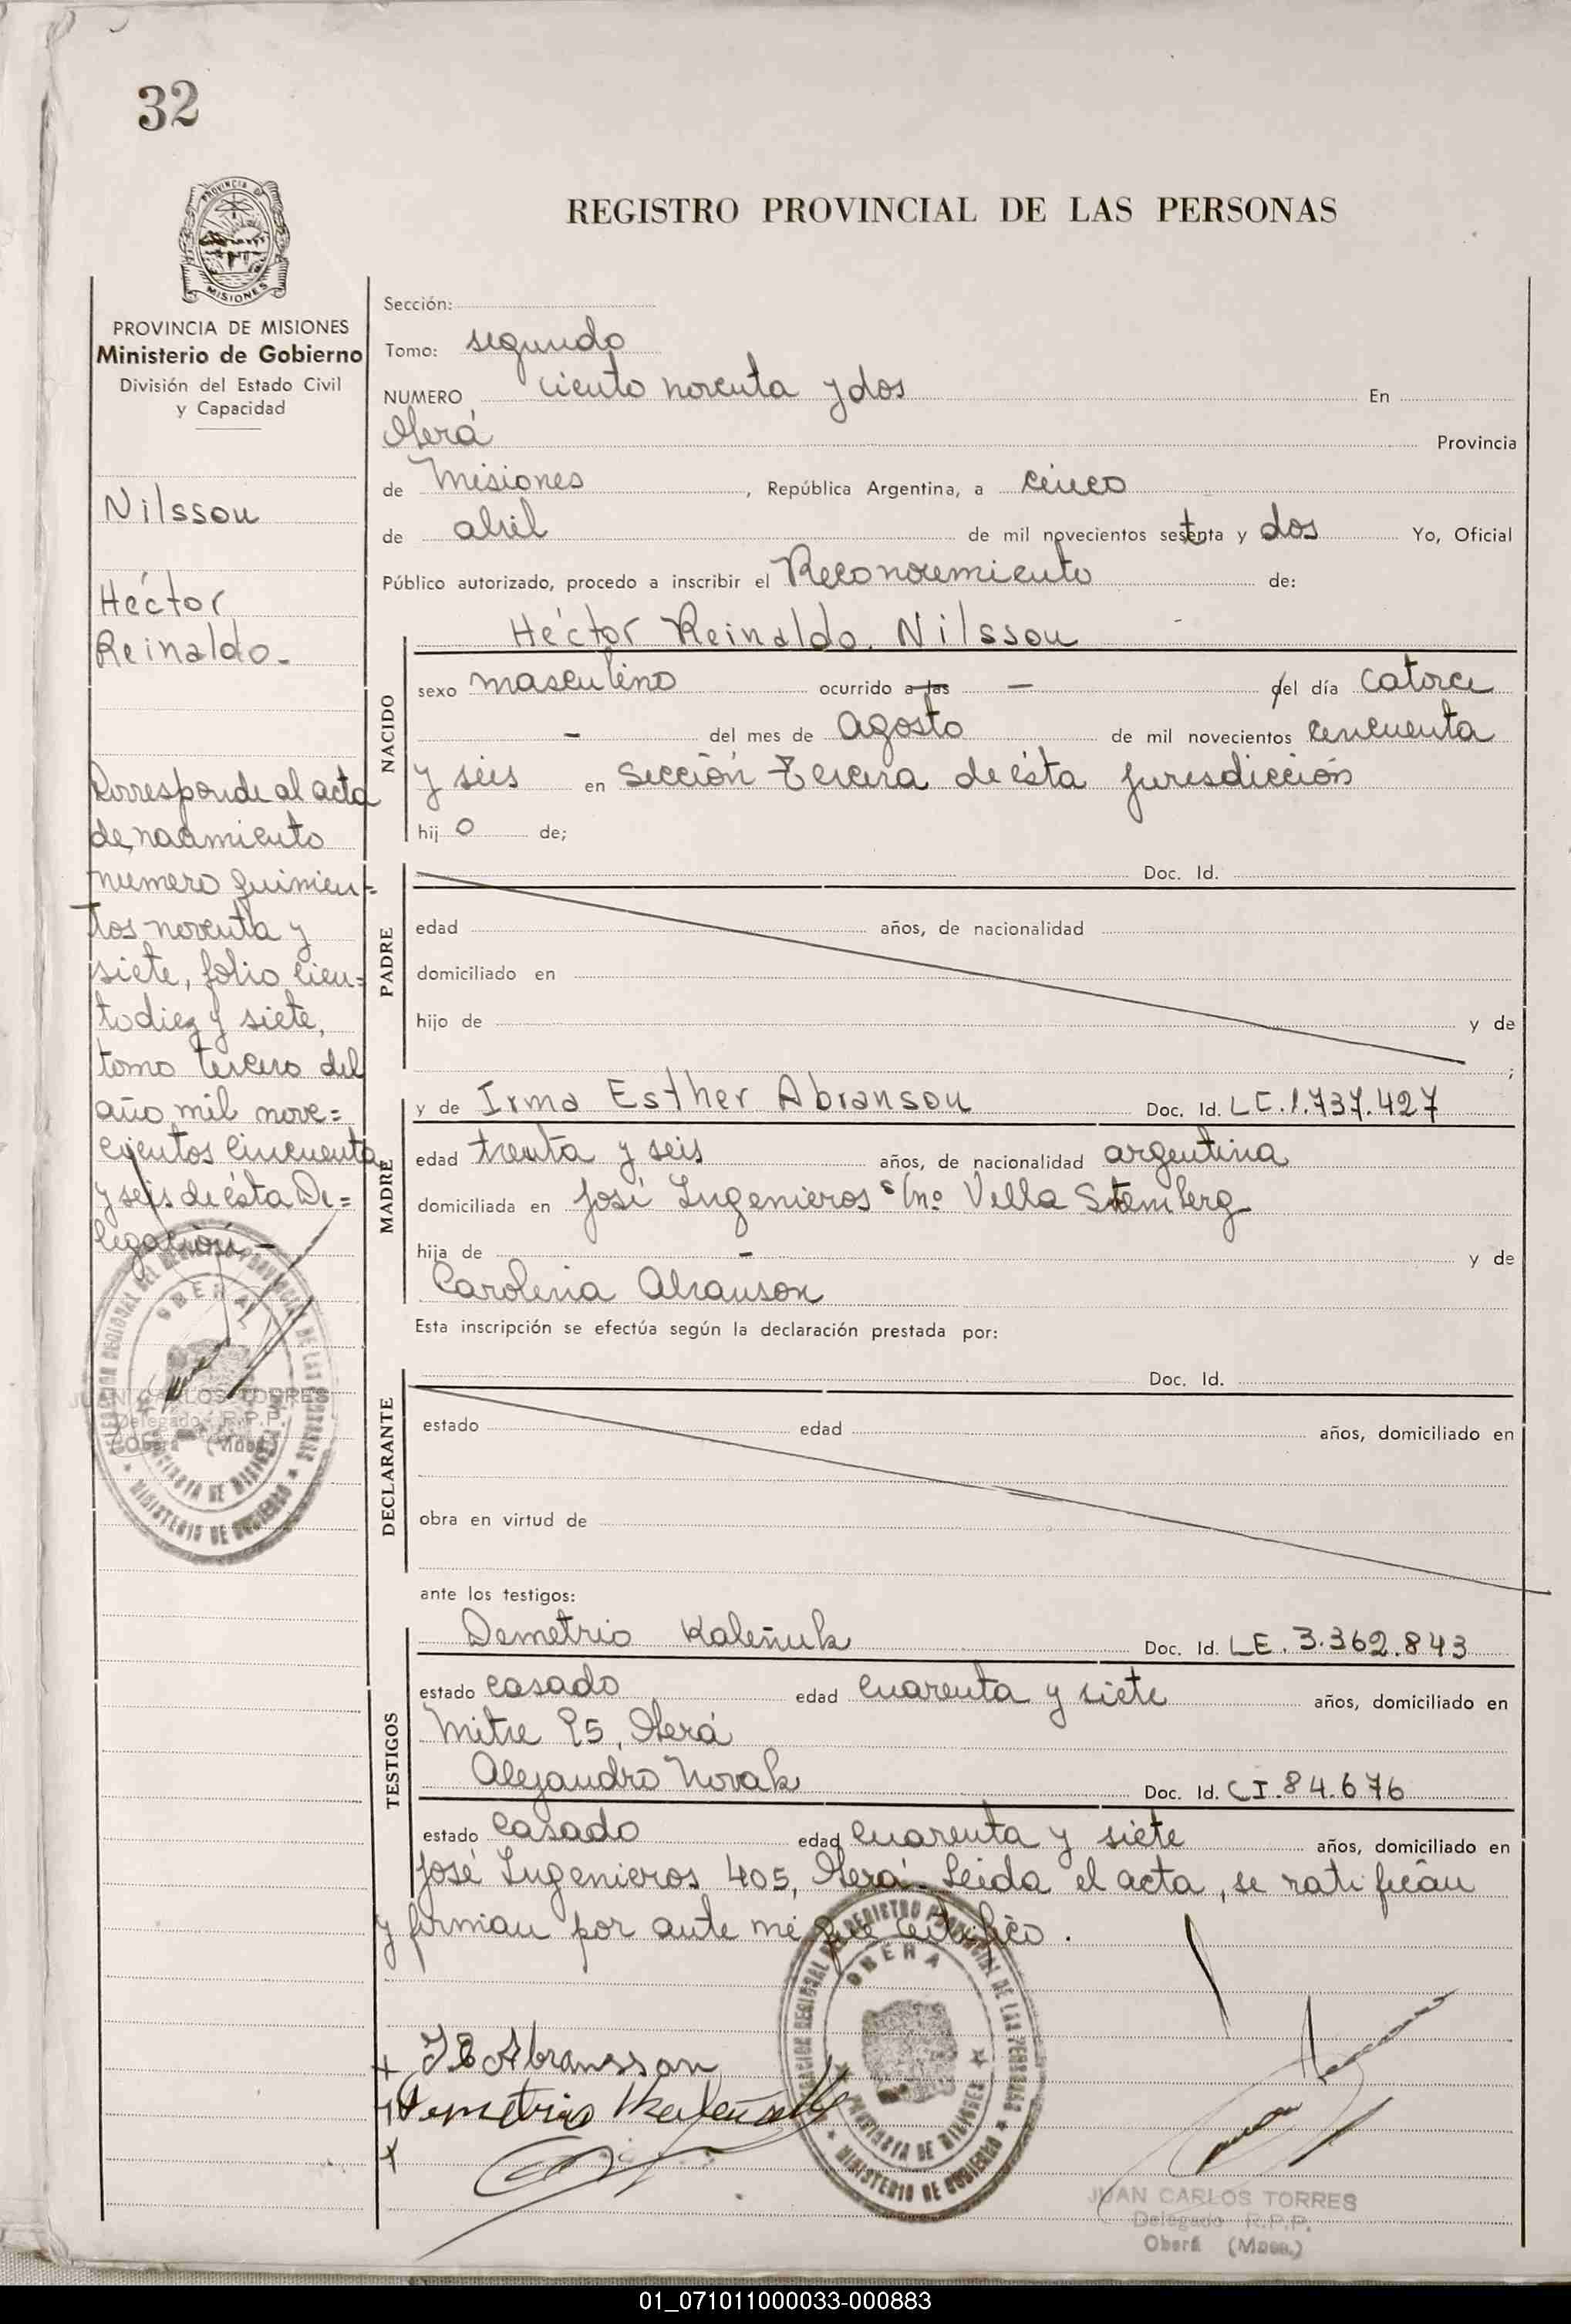 32
PROVINCIA DE MISIONES
REGISTRO PROVINCIAL DE LAS PERSONAS
PROVINCIA DE MISIONES
Ministerio de Gobierno
División del Estado Civil
y Capacidad
Nilsson
Héctor
Reinaldo.-
Corresponde al acta
de nacimiento
numero quinien=
tos noventa y
siete, folio cien=
to diez y siete,
tomo tercero del
año mil nove=
cientos cincuenta
y seis de ésta De=
legación.-
DELEGACION REGIONAL DEL REGISTRO PROVINCIAL DE LAS PERSONAS
OBERA
PROVINCIA DE MISIONES
MINISTERIO DE GOBIERNO
JUAN CARLOS TORRES
Delegado R.P.P.
Oberá (Mnes.)
Sección:
Tomo: segundo
NUMERO ciento noventa y dos En
Oberá Provincia
de Misiones, República Argentina, a cinco
de abril de mil novecientos setenta y dos Yo, Oficial
Público autorizado, procedo a inscribir el Reconocimiento de:
NACIDO
Héctor Reinaldo Nilsson -
sexo masculino ocurrido a las - del día catorce
- del mes de Agosto de mil novecientos cincuenta
y seis en Sección Tercera de ésta jurisdicción
hijo de;
PADRE
Doc. Id.
edad años, de nacionalidad
domiciliado en
hijo de y de
;
MADRE
y de Irma Esther Abranson Doc. Id. LC.1.737.427
edad treinta y seis años, de nacionalidad argentina
domiciliada en José Ingenieros s/nº Villa Stemberg
hija de - y de
Carolina Abranson
Esta inscripción se efectúa según la declaración prestada por:
DECLARANTE
Doc. Id.
estado edad años, domiciliado en
obra en virtud de
ante los testigos:
TESTIGOS
Demetrio Kaleñuk Doc. Id. LE.3.362.843
estado casado edad cuarenta y siete años, domiciliado en
Mitre 95, Oberá
Alejandro Novak Doc. Id. CI.84.676
estado casado edad cuarenta y siete años, domiciliado en
José Ingenieros 405, Oberá. Leida el acta, se ratifican
y firman por ante mi que certifico.
DELEGACION REGIONAL DEL REGISTRO PROVINCIAL DE LAS PERSONAS
OBERA
PROVINCIA DE MISIONES
MINISTERIO DE GOBIERNO
+ I E Abransson
+ Demetrio Kaleñuk
+
JUAN CARLOS TORRES
Delegado R.P.P.
Oberá (Mnes.)
01_071011000033-000883